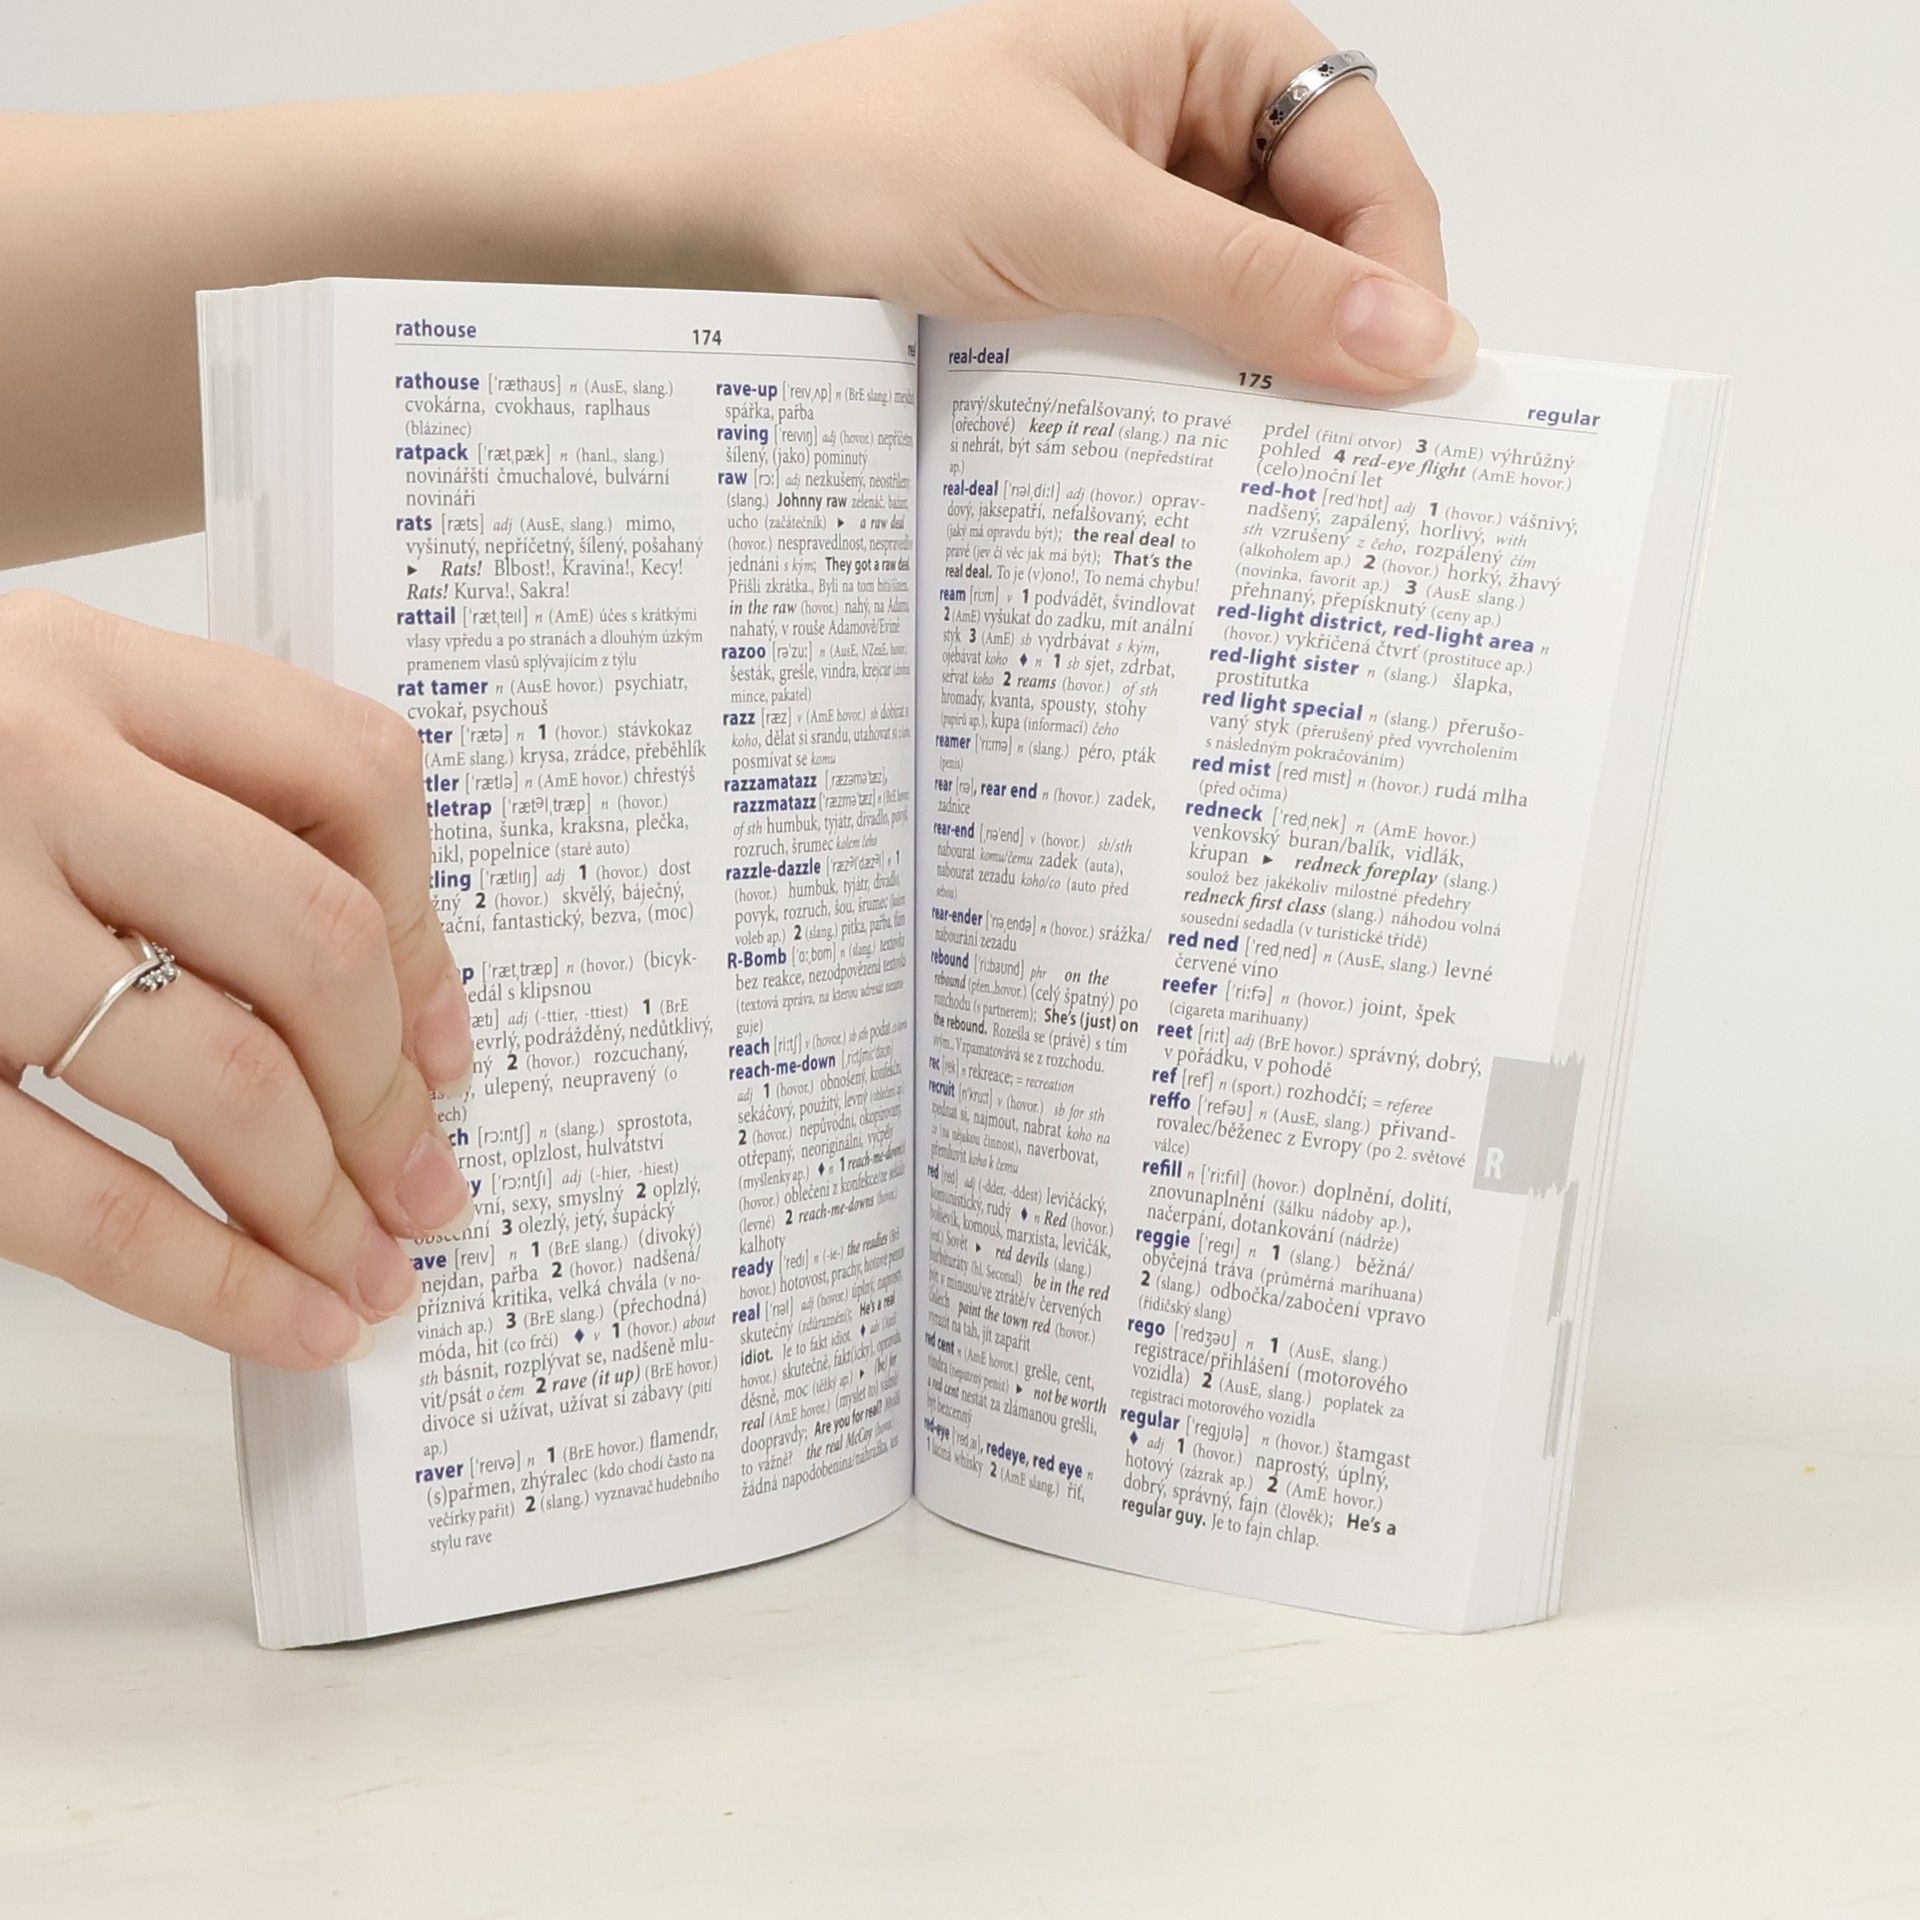 rathouse
174
rathouse [ˈræthaʊs] n (AusE, slang.)
cvokárna, cvokhaus, raplhaus
(blázinec)
ratpack [ˈrætˌpæk] n (hanl., slang.)
novinářští čmuchalové, bulvární
novináři
rats [ræts] adj (AusE, slang.) mimo,
vyšinutý, nepříčetný, šílený, pošahaný
► Rats! Blbost!, Kravina!, Kecy!
Rats! Kurva!, Sakra!
rattail [ˈrætˌteɪl] n (AmE) účes s krátkými
vlasy vpředu a po stranách a dlouhým úzkým
pramenem vlasů splývajícím z týlu
rat tamer n (AusE hovor.) psychiatr,
cvokař, psychouš
tter [ˈrætə] n 1 (hovor.) stávkokaz
(AmE slang.) krysa, zrádce, přeběhlík
tler [ˈrætlə] n (AmE hovor.) chřestýš
tletrap [ˈrætəlˌtræp] n (hovor.)
hotina, šunka, kraksna, plečka,
nikl, popelnice (staré auto)
tling [ˈrætlɪŋ] adj 1 (hovor.) dost
žný 2 (hovor.) skvělý, báječný,
zační, fantastický, bezva, (moc)
p [ˈrætˌtræp] n (hovor.) (bicyk-
edál s klipsnou
ætɪ] adj (-ttier, -ttiest) 1 (BrE
evrlý, podrážděný, nedůtklivý,
ný 2 (hovor.) rozcuchaný,
ulepený, neupravený (o
ech)
ch [rɔːntʃ] n (slang.) sprostota,
rnost, oplzlost, hulvátství
y [ˈrɔːntʃɪ] adj (-hier, -hiest)
vní, sexy, smyslný 2 oplzlý,
3 olezlý, jetý, šupácký
rave [reɪv] n 1 (BrE slang.) (divoký)
nejdan, pařba 2 (hovor.) nadšená/
příznivá kritika, velká chvála (v no-
vinách ap.) 3 (BrE slang.) (přechodná)
móda, hit (co frčí) ♦ v 1 (hovor.) about
sth básnit, rozplývat se, nadšeně mlu-
vit/psát o čem 2 rave (it up) (BrE hovor.)
divoce si užívat, užívat si zábavy (pití
ap.)
raver [ˈreɪvə] n 1 (BrE hovor.) flamendr,
(s)pařmen, zhýralec (kdo chodí často na
večírky pařit) 2 (slang.) vyznavač hudebního
stylu rave
rave-up [ˈreɪvˌʌp] n (BrE slang.)
spářka, pařba
raving [ˈreɪvɪŋ] adj (hovor.)
šílený, (jako) pominutý
raw [rɔː] adj nezkušený,
(slang.) Johnny raw zelenáč,
ucho (začátečník) ► a raw deal
(hovor.) nespravedlnost,
jednání s kým; They got a raw deal.
Přišli zkrátka., Byli na tom
in the raw (hovor.) nahý, na Adama,
nahatý, v rouše Adamově/Evině
razoo [rəˈzuː] n (AusE, NZealE, hovor.)
šesták, grešle, vindra, krejcar
mince, pakatel)
razz [ræz] v (AmE hovor.) sb dobírat si
koho, dělat si srandu, utahovat si
posmívat se komu
razzamatazz [ˌræzəməˈtæz],
razzmatazz [ˌræzməˈtæz] n
of sth humbuk, tyjátr, divadlo, povyk,
rozruch, šrumec kolem čeho
razzle-dazzle [ˌræzəlˈdæzəl] n 1
(hovor.) humbuk, tyjátr, divadlo,
povyk, rozruch, šou, šrumec
voleb ap.) 2 (slang.) pitka, pařba,
R-Bomb [ˈɑːˌbɒm] n (slang.)
bez reakce, nezodpovězená
(textová zpráva, na kterou adresát
guje)
reach [riːtʃ] v (hovor.) sb sth podat
reach-me-down [ˈriːtʃmɪˈdaʊn]
adj 1 (hovor.) obnošený, konfekční,
sekáčový, použitý, levný
2 (hovor.) nepůvodní, okopírovaný,
otřepaný, neoriginální, vyčpělý
(myšlenky ap.) ♦ n 1 reach-me-downs
(hovor.) oblečení z konfekce/ze sekáče
(levné) 2 reach-me-downs (hovor.)
kalhoty
ready [ˈredɪ] n (-ie-) the readies (BrE
hovor.) hotovost, prachy, hotové peníze
real [ˈrɪəl] adj (hovor.) úplný, naprostý,
skutečný (zdůraznění); He's a real
idiot. Je to fakt idiot. ♦ adv (AmE
hovor.) skutečně, fakt(icky), opravdu,
děsně, moc (těžký ap.) ► (be) for
real (AmE hovor.) (myslet to) vážně
doopravdy; Are you for real?
to vážně? the real McCoy (hovor.)
žádná napodobenina/náhražka, ten
real-deal
175
regular
pravý/skutečný/nefalšovaný, to pravé
(ořechové) keep it real (slang.) na nic
si nehrát, být sám sebou (nepředstírat
ap.)
real-deal [ˈrɪəlˌdiːl] adj (hovor.) oprav-
dový, jaksepatří, nefalšovaný, echt
(jaký má opravdu být); the real deal to
pravé (jev či věc jak má být); That's the
real deal. To je (v)ono!, To nemá chybu!
ream [riːm] v 1 podvádět, švindlovat
2 (AmE) vyšukat do zadku, mít anální
styk 3 (AmE) sb vydrbávat s kým,
ojebávat koho ♦ n 1 sb sjet, zdrbat,
seřvat koho 2 reams (hovor.) of sth
hromady, kvanta, spousty, stohy
(papírů ap.), kupa (informací) čeho
reamer [ˈriːmə] n (slang.) péro, pták
(penis)
rear [rɪə], rear end n (hovor.) zadek,
zadnice
rear-end [ˌrɪəˈend] v (hovor.) sb/sth
nabourat komu/čemu zadek (auta),
nabourat zezadu koho/co (auto před
sebou)
rear-ender [ˈrɪəˌendə] n (hovor.) srážka/
nabourání zezadu
rebound [ˈriːbaʊnd] phr on the
rebound (přen., hovor.) (celý špatný) po
rozchodu (s partnerem); She's (just) on
the rebound. Rozešla se (právě) s tím
svým., Vzpamatovává se z rozchodu.
rec [rek] n rekreace; = recreation
recruit [rɪˈkruːt] v (hovor.) sb for sth
zjednat si, najmout, nabrat koho na
co (na nějakou činnost), naverbovat,
přemluvit koho k čemu
red [red] adj (-dder, -ddest) levičácký,
komunistický, rudý ♦ n Red (hovor.)
bolševik, komouš, marxista, levičák,
Sovět ► red devils (slang.)
barbituráty (hl. Seconal) be in the red
být v minusu/ve ztrátě/v červených
číslech paint the town red (hovor.)
vyrazit na tah, jít zapařit
red cent n (AmE hovor.) grešle, cent,
vindra (nepatrný peníz) ► not be worth
a red cent nestát za zlámanou grešli,
být bezcenný
red-eye [ˈredˌaɪ], redeye, red eye n
1 laciná whisky 2 (AmE slang.) řiť,
prdel (řitní otvor) 3 (AmE) výhrůžný
pohled 4 red-eye flight (AmE hovor.)
(celo)noční let
red-hot [redˈhɒt] adj 1 (hovor.) vášnivý,
nadšený, zapálený, horlivý, with
sth vzrušený z čeho, rozpálený čím
(alkoholem ap.) 2 (hovor.) horký, žhavý
(novinka, favorit ap.) 3 (AusE slang.)
přehnaný, přepísknutý (ceny ap.)
red-light district, red-light area n
(hovor.) vykřičená čtvrť (prostituce ap.)
red-light sister n (slang.) šlapka,
prostitutka
red light special n (slang.) přerušo-
vaný styk (přerušený před vyvrcholením
s následným pokračováním)
red mist [red mɪst] n (hovor.) rudá mlha
(před očima)
redneck [ˈredˌnek] n (AmE hovor.)
venkovský buran/balík, vidlák,
křupan ► redneck foreplay (slang.)
soulož bez jakékoliv milostné předehry
redneck first class (slang.) náhodou volná
sousední sedadla (v turistické třídě)
red ned [ˈredˌned] n (AusE, slang.) levné
červené víno
reefer [ˈriːfə] n (hovor.) joint, špek
(cigareta marihuany)
reet [riːt] adj (BrE hovor.) správný, dobrý,
v pořádku, v pohodě
ref [ref] n (sport.) rozhodčí; = referee
reffo [ˈrefəʊ] n (AusE, slang.) přivand-
rovalec/běženec z Evropy (po 2. světové
válce)
refill n [ˈriːfɪl] (hovor.) doplnění, dolití,
znovunaplnění (šálku nádoby ap.),
načerpání, dotankování (nádrže)
reggie [ˈregɪ] n 1 (slang.) běžná/
obyčejná tráva (průměrná marihuana)
2 (slang.) odbočka/zabočení vpravo
(řidičský slang)
rego [ˈredʒəʊ] n 1 (AusE, slang.)
registrace/přihlášení (motorového
vozidla) 2 (AusE, slang.) poplatek za
registraci motorového vozidla
regular [ˈregjʊlə] n (hovor.) štamgast
♦ adj 1 (hovor.) naprostý, úplný,
hotový (zázrak ap.) 2 (AmE hovor.)
dobrý, správný, fajn (člověk); He's a
regular guy. Je to fajn chlap.
R